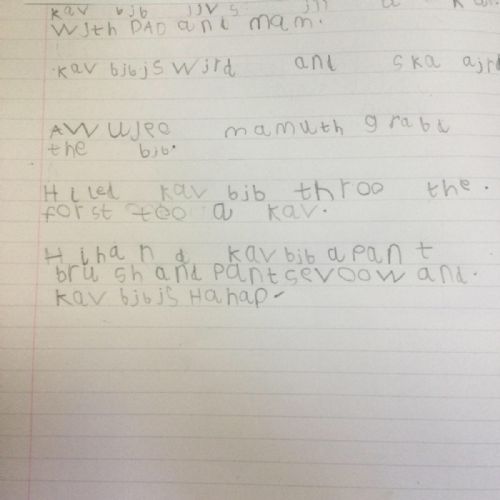 kav bjb jjvs a
wjth DAD and mam.
kav bjbjs wjrd and ska ajrd
AW ujec mamuth grabd
the bjb.
Hiled kav bjb throo the.
forst too a kav.
Hihand kavbjb apant
brushand pantsevoow and.
kav bjbjs Hahap